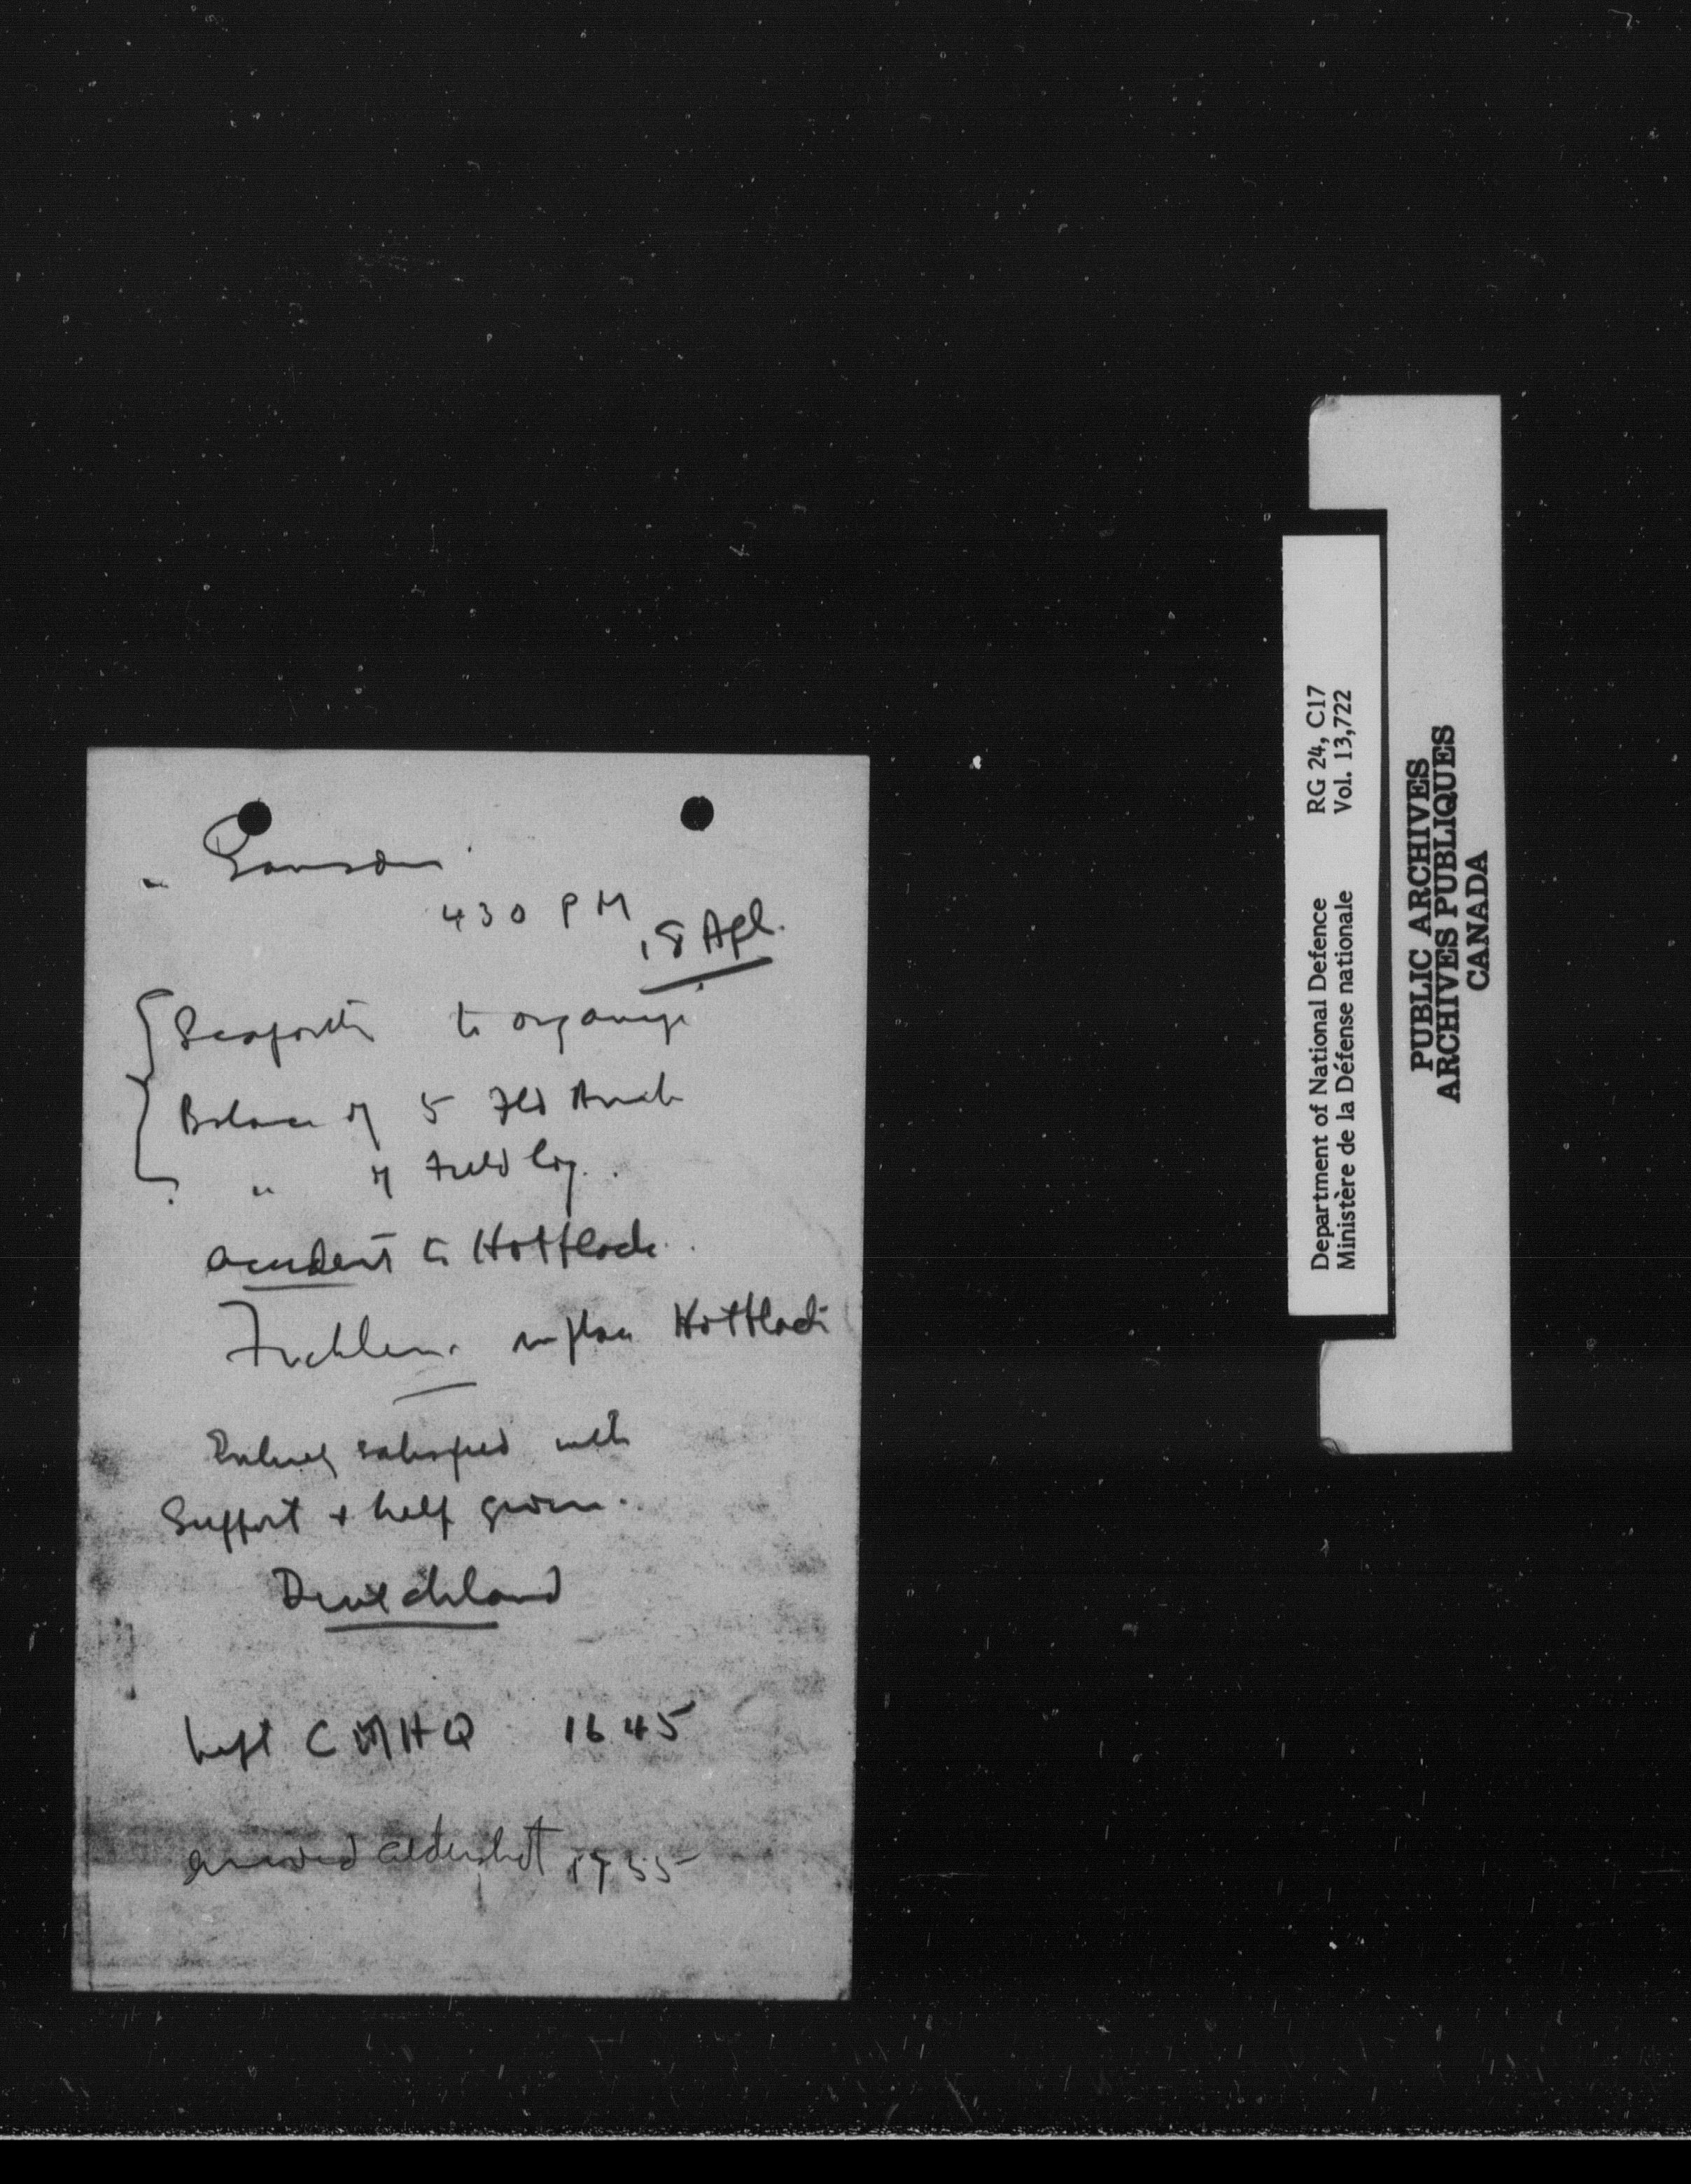 430 PM
18 Apl.
Seaforths to organize
Balance of 5 Fld Amb
" of Field Coy.
accident to Hottlack.
replace Hottlack
Entirely satisfied with
Support + help given.
Deutchland
Left CMHQ 1645
arrived aldershot
Department of National Defence RG 24, C17
Ministère de la Défense nationale Vol. 13,722
PUBLIC ARCHIVES
ARCHIVES PUBLIQUES
CANADA